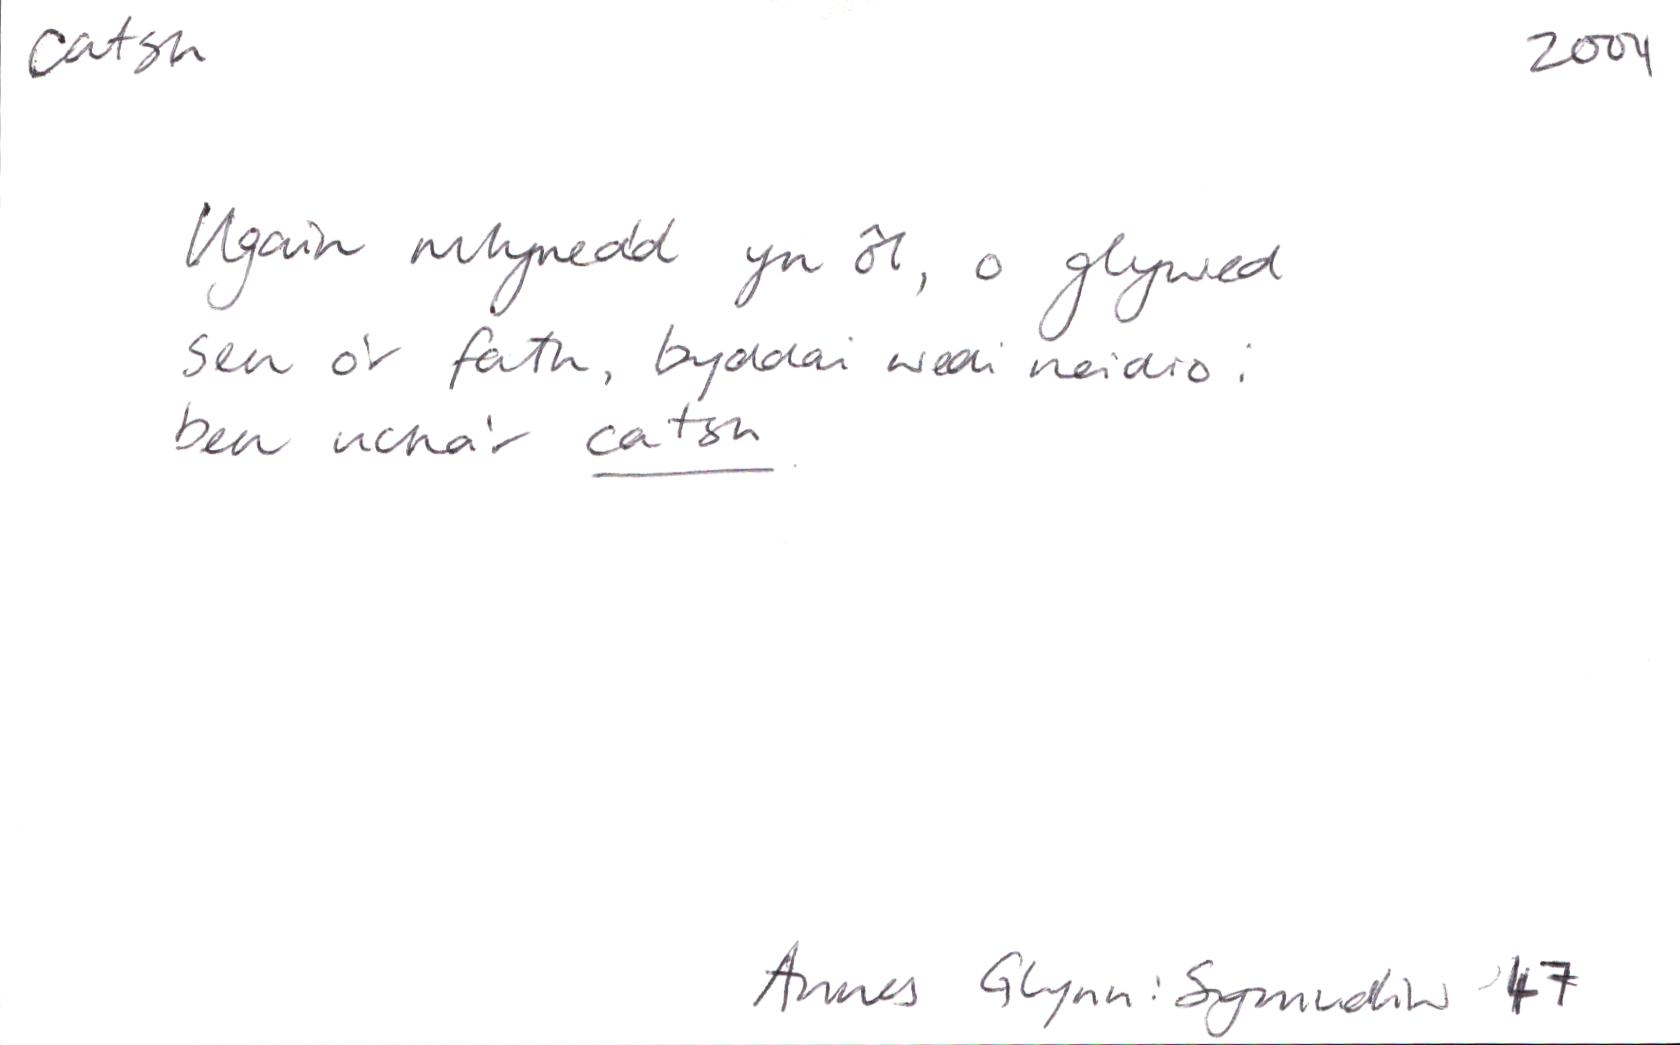 catsh 2004
Ugain mlynedd yn ôl, o glywed
sen o'r fath, byddai wedi neidio i
ben ucha'r catsh
Annes Glynn: Symudliw 47